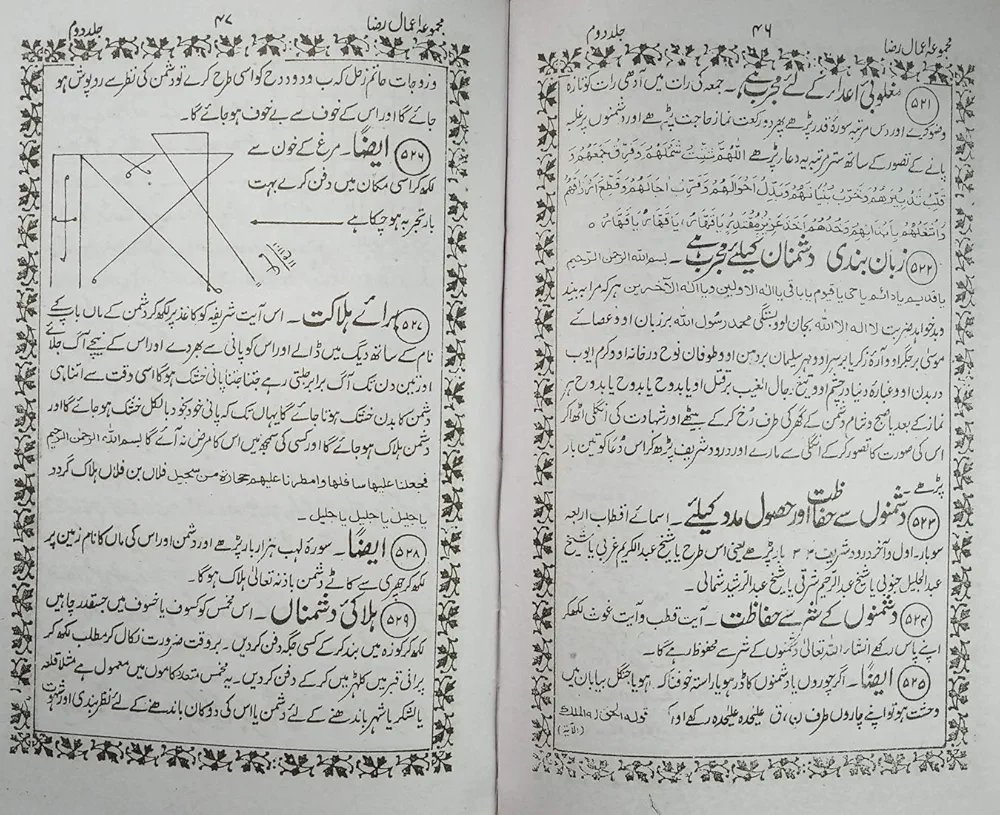 مجموعہ اعمال رضا
۴۶
جلد دوم
۵۲۱ مغلوبئ اعداء کے لئے مجرب ہے۔ جمعہ کی رات میں آدھی رات کو تازہ
وضو کرے اور دس مرتبہ سورۂ قدر پڑھے پھر دو رکعت نماز حاجت پڑھے اور دشمنوں پر غلبہ
پانے کے تصور کے ساتھ ستر مرتبہ یہ دعا پڑھے اَللّٰھُمَّ شَتِّتْ شَمْلَھُمْ وَفَرِّقْ جَمْعَھُمْ وَ
قَلِّبْ تَدْبِیْرَھُمْ وَخَرِّبْ بُنْیَانَھُمْ وَبَدِّلْ اَحْوَالَھُمْ وَقَرِّبْ اٰجَالَھُمْ وَقَطِّعْ
وَاشْغَلْھُمْ بِاَبْدَانِھِمْ وَخُذْھُمْ اَخْذَ عَزِیْزٍ مُّقْتَدِرٍ یَاقَھَّارُ یَاقَھَّارُ یَاقَھَّارُ
۵۲۲ زبان بندی دشمنان کیلئے مجرب ہے۔ بسم اللہ الرحمٰن الرحیم
یاقدیم یادائم یاحی یاقیوم یاباقی یاالہ الاولین ویاالہ الآخرین ہر کہ مرا بہ بند
وبدخواہد ضربت لا الہ الا اللہ بجان او وبستگی محمد رسول اللہ بر زبان او وعصائے
موسیٰ بر جگر او وآرۂ زکریا بر سر او ومہر سلیمان بر دہن او وطوفان نوح در خانہ او وکرم ایوب
در بدن او وغبارہ دنیا در چشم او وتیغ رجال الغیب بر قتل او یابدوح یابدوح یابدوح ہر
نماز کے بعد یا صبح و شام دشمن کے گھر کی طرف رخ کر کے بیٹھے اور شہادت کی انگلی اٹھا کر
اس کی صورت کا تصور کر کے انگلی سے مارے اور درود شریف پڑھ کر اس دعا کو تین بار
پڑھے۔
۵۲۳ دشمنوں سے حفاظت اور حصول مدد کیلئے۔ اسمائے اقطاب اربعہ
سو بار۔ اول و آخر درود شریف ۳۳ بار پڑھے یعنی اس طرح یا شیخ عبد الکریم غربی یا شیخ
عبد الجلیل جنوبی یا شیخ عبد الرحیم شرقی یا شیخ عبد الرشید شمالی۔
۵۲۴ دشمنوں کے شر سے حفاظت۔ آیت قطب و آیت غوث لکھ کر
اپنے پاس رکھے انشاء اللہ تعالیٰ دشمنوں کے شر سے محفوظ رہے گا۔
۵۲۵ ایضًا۔ اگر چوروں یا دشمنوں کا ڈر ہو یا راستہ خوفناک ہو یا جنگل بیابان میں
وحشت ہو تو اپنے چاروں طرف ن، ق علیحدہ علیحدہ رکھے اور آکر قولہ الحق ولہ الملک
(الآیۃ)
مجموعہ اعمال رضا
۴۷
جلد دوم
جائے گا اور اس کے خوف سے بے خوف ہو جائے گا۔
۵۲۶ ایضًا۔ مرغ کے خون سے
لکھ کر اسی مکان میں دفن کرے بہت
بار تجربہ ہو چکا ہے
۵۲۷ برائے ہلاکت۔ اس آیت شریفہ کو کاغذ پر لکھ کر دشمن کے ماں باپ کے
نام کے ساتھ دیگ میں ڈالے اور اس کو پانی سے بھر دے اور اس کے نیچے آگ جلائے
اور تین دن تک آگ برابر جلتی رہے جتنا جتنا پانی خشک ہوگا اسی وقت سے اتنا ہی
دشمن کا بدن خشک ہوتا جائے گا یہاں تک کہ پانی خود بخود بالکل خشک ہو جائے گا اور
دشمن ہلاک ہو جائے گا اور کسی کی سمجھ میں اس کا مرض نہ آئے گا بسم اللہ الرحمٰن الرحیم
فجعلنا علیھا سافلھا وامطرنا علیھم حجارۃ من سجیل فلاں بن فلاں ہلاک گردد
یا جلیل یا جلیل یا جلیل۔
۵۲۸ ایضًا۔ سورۂ لہب ہزار بار پڑھے اور دشمن اور اس کی ماں کا نام زمین پر
لکھ کر چھری سے کاٹے دشمن باذنہ تعالیٰ ہلاک ہوگا۔
۵۲۹ ہلاکئ دشمنان۔ اس مخمس کو کسوف یا خسوف میں جسقدر چاہیں
لکھ کر کوزہ میں بند کر کے کسی جگہ دفن کر دیں۔ بروقت ضرورت نکال کر مطلب لکھ کر
پرانی قبر میں کلہر میں کر کے دفن کر دیں۔ یہ مخمس متعدد کاموں میں معمول ہے مثلا قلعہ
یا لشکر یا شہر باندھنے کے لئے دشمن یا اس کی دوکان باندھنے کے لئے نظر بندی اور شہوت